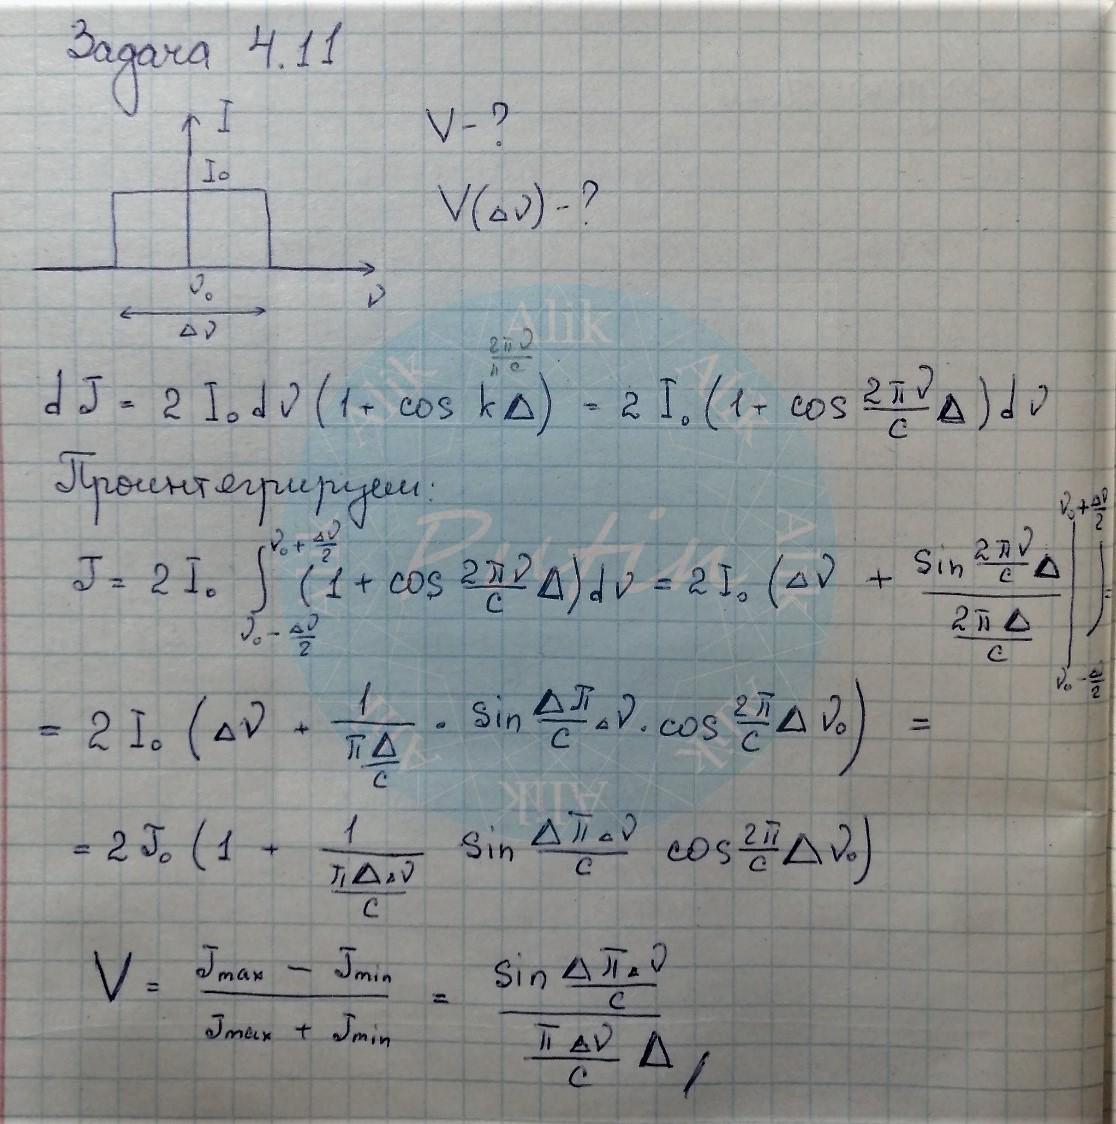 Задача 4.11
I
I₀
V - ?
V(Δν) - ?
ν₀
ν
Δν
2πν
π c
dJ = 2 I₀ dν (1 + cos kΔ) = 2 I₀ (1 + cos 2πν/c Δ) dν
Проинтегрируем:
J = 2 I₀ ∫_{ν₀ - Δν/2}^{ν₀ + Δν/2} (1 + cos 2πν/c Δ) dν = 2 I₀ (Δν + (sin 2πν/c Δ)/(2πΔ/c) |_{ν₀ - Δ/2}^{ν₀ + Δν/2}) =
= 2 I₀ (Δν + 1/(πΔ/c) · sin Δπ/c Δν · cos 2π/c Δ ν₀) =
= 2 J₀ (1 + 1/(πΔΔν/c) sin ΔπΔν/c cos 2π/c Δ ν₀)
V = (Jmax - Jmin)/(Jmax + Jmin) = (sin ΔπΔν/c)/(πΔν/c Δ)
Alik
Alik
Alik
Alik
Alik
Alik
Alik
Putin